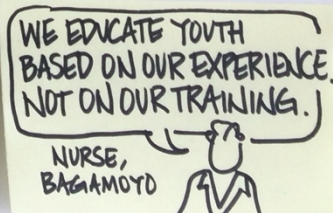 WE EDUCATE YOUTH
BASED ON OUR EXPERIENCE.
NOT ON OUR TRAINING.
NURSE,
BAGAMOYO